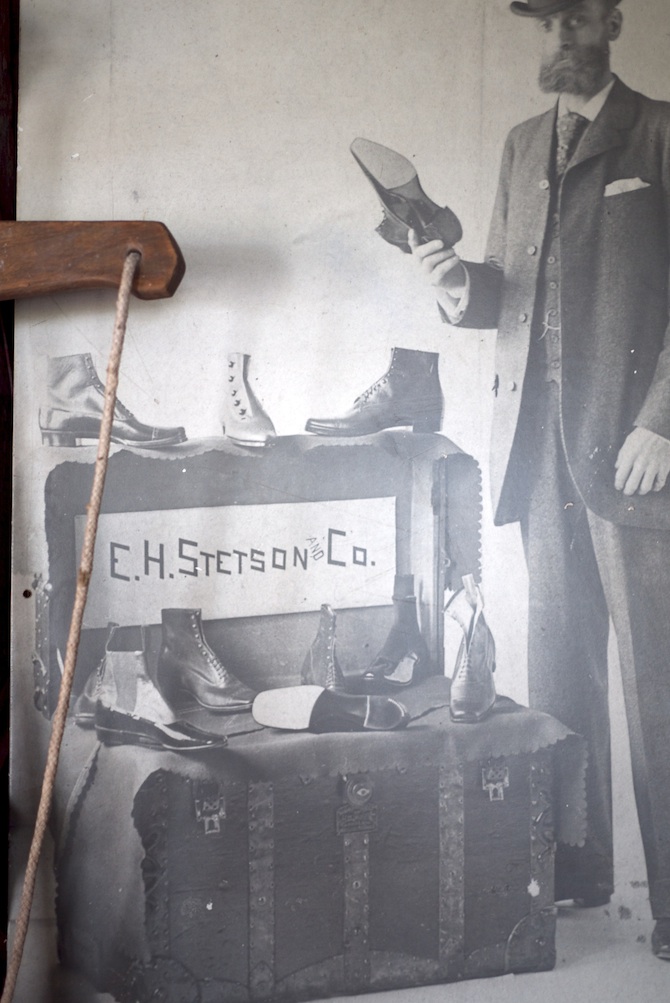 E.H. STETSON AND Co.